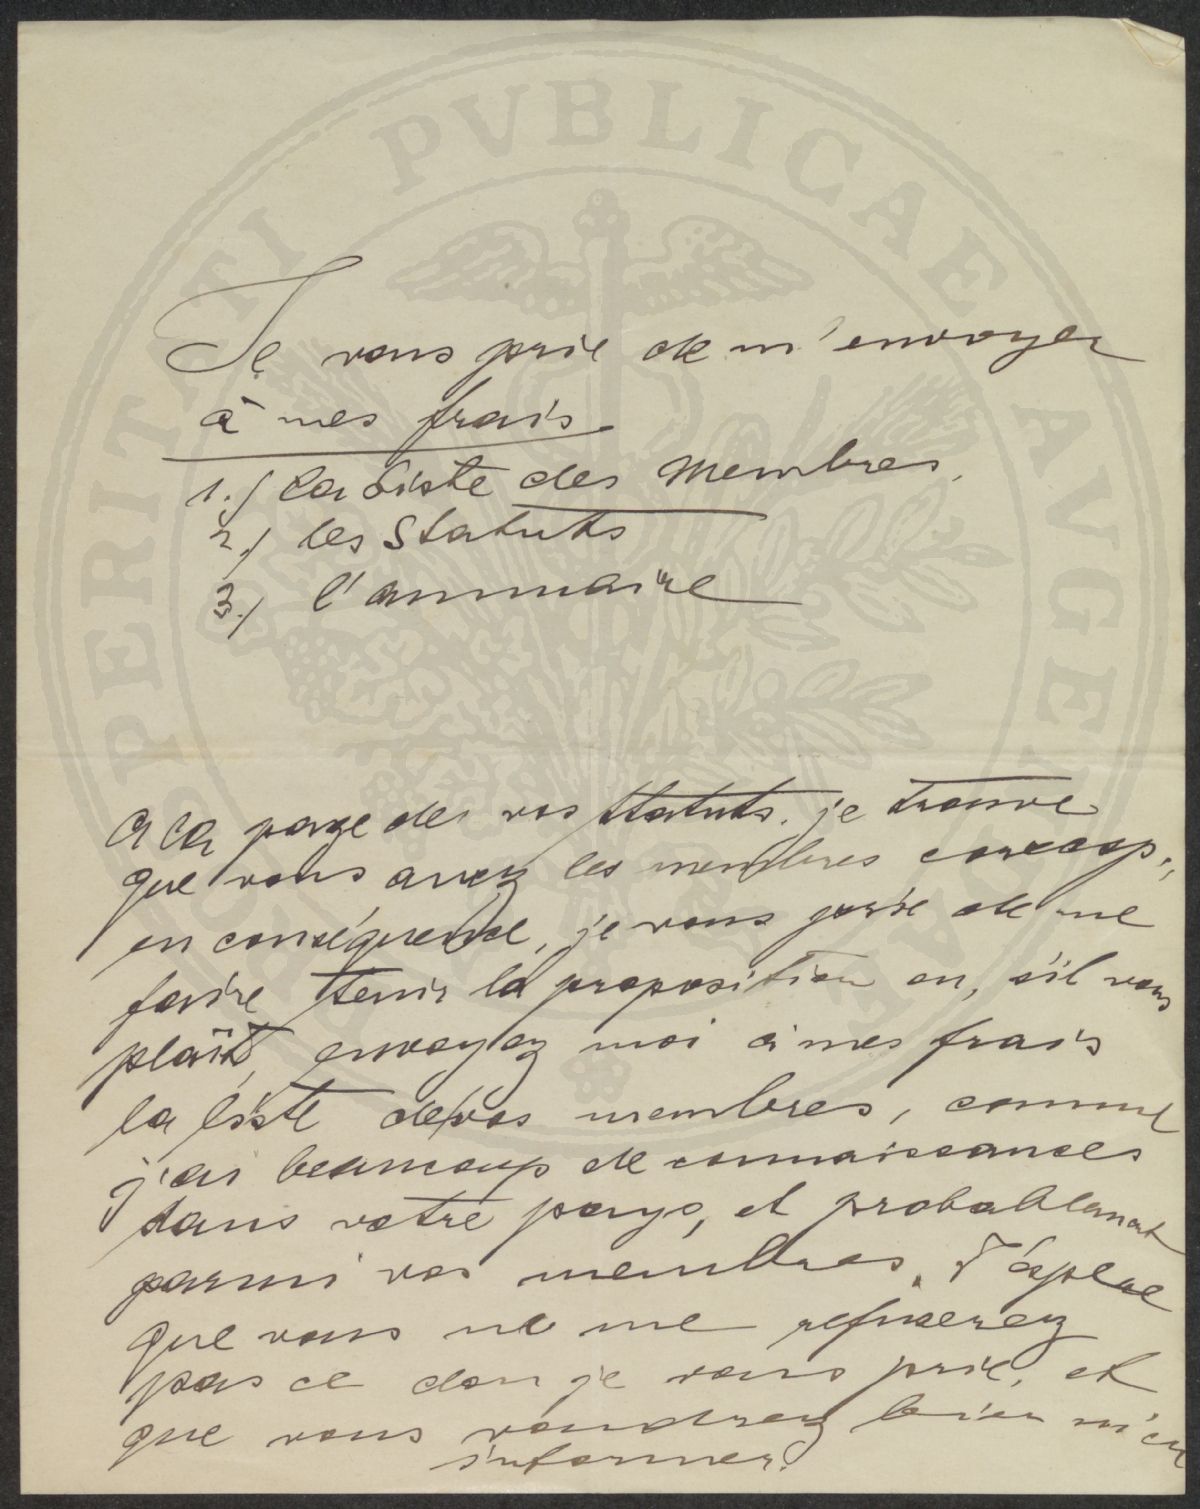 Je vous prie de m'envoyer
à mes frais
1.) la Liste des Membres.
2.) les Statuts
3.) l'annuaire
A la page de vos Statuts. je trouve
que vous avez les membres corresp.,
en conséquence, je vous prie de me
faire tenir la proposition ou, s'il vous
plaît, envoyez moi à mes frais
la liste de vos membres, comme
j'ai beaucoup de connaissances
dans votre pays, et probablement
parmi vos membres. J'éspère
que vous ne me refuserez
pas ce don je vous prie, et
que vous voudrez bien m'en
informer.
PERITI PVBLICAE AVGEN